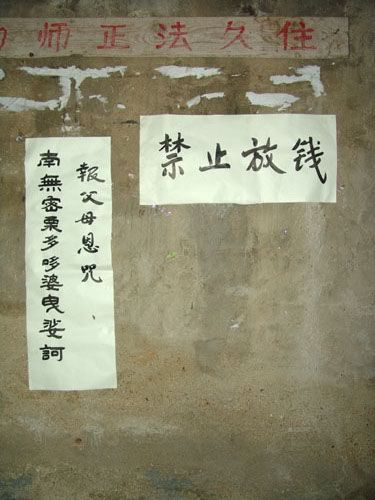 师正法久住
禁止放钱
報父母恩咒
南無密栗多哆婆曳娑訶